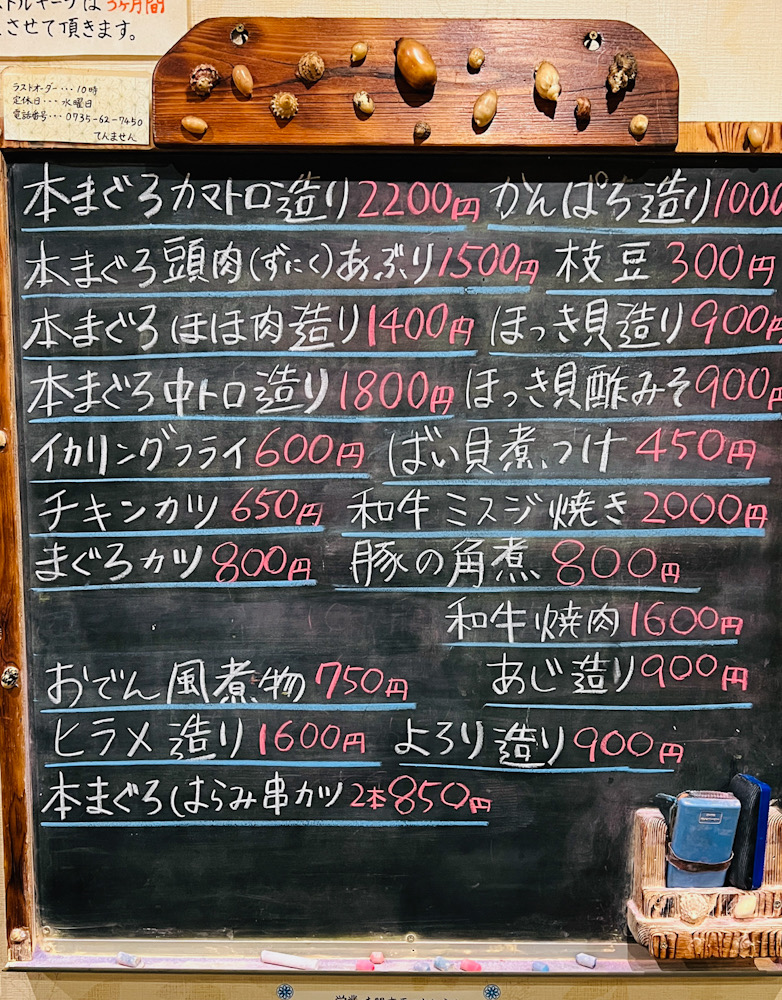 トルキープは3ヶ月間
させて頂きます。
ラストオーダー・・・10時
定休日・・・水曜日
電話番号・・・0735-62-7450
てんません
本まぐろカマトロ造り2200円
かんぱち造り1000
本まぐろ頭肉(ずにく)あぶり1500円
枝豆300円
本まぐろほほ肉造り1400円
ほっき貝造り900円
本まぐろ中トロ造り1800円
ほっき貝酢みそ900円
イカリングフライ600円
ばい貝煮つけ450円
チキンカツ650円
和牛ミスジ焼き2000円
まぐろカツ800円
豚の角煮800円
和牛焼肉1600円
おでん風煮物750円
あじ造り900円
ヒラメ造り1600円
よろり造り900円
本まぐろはらみ串カツ2本850円